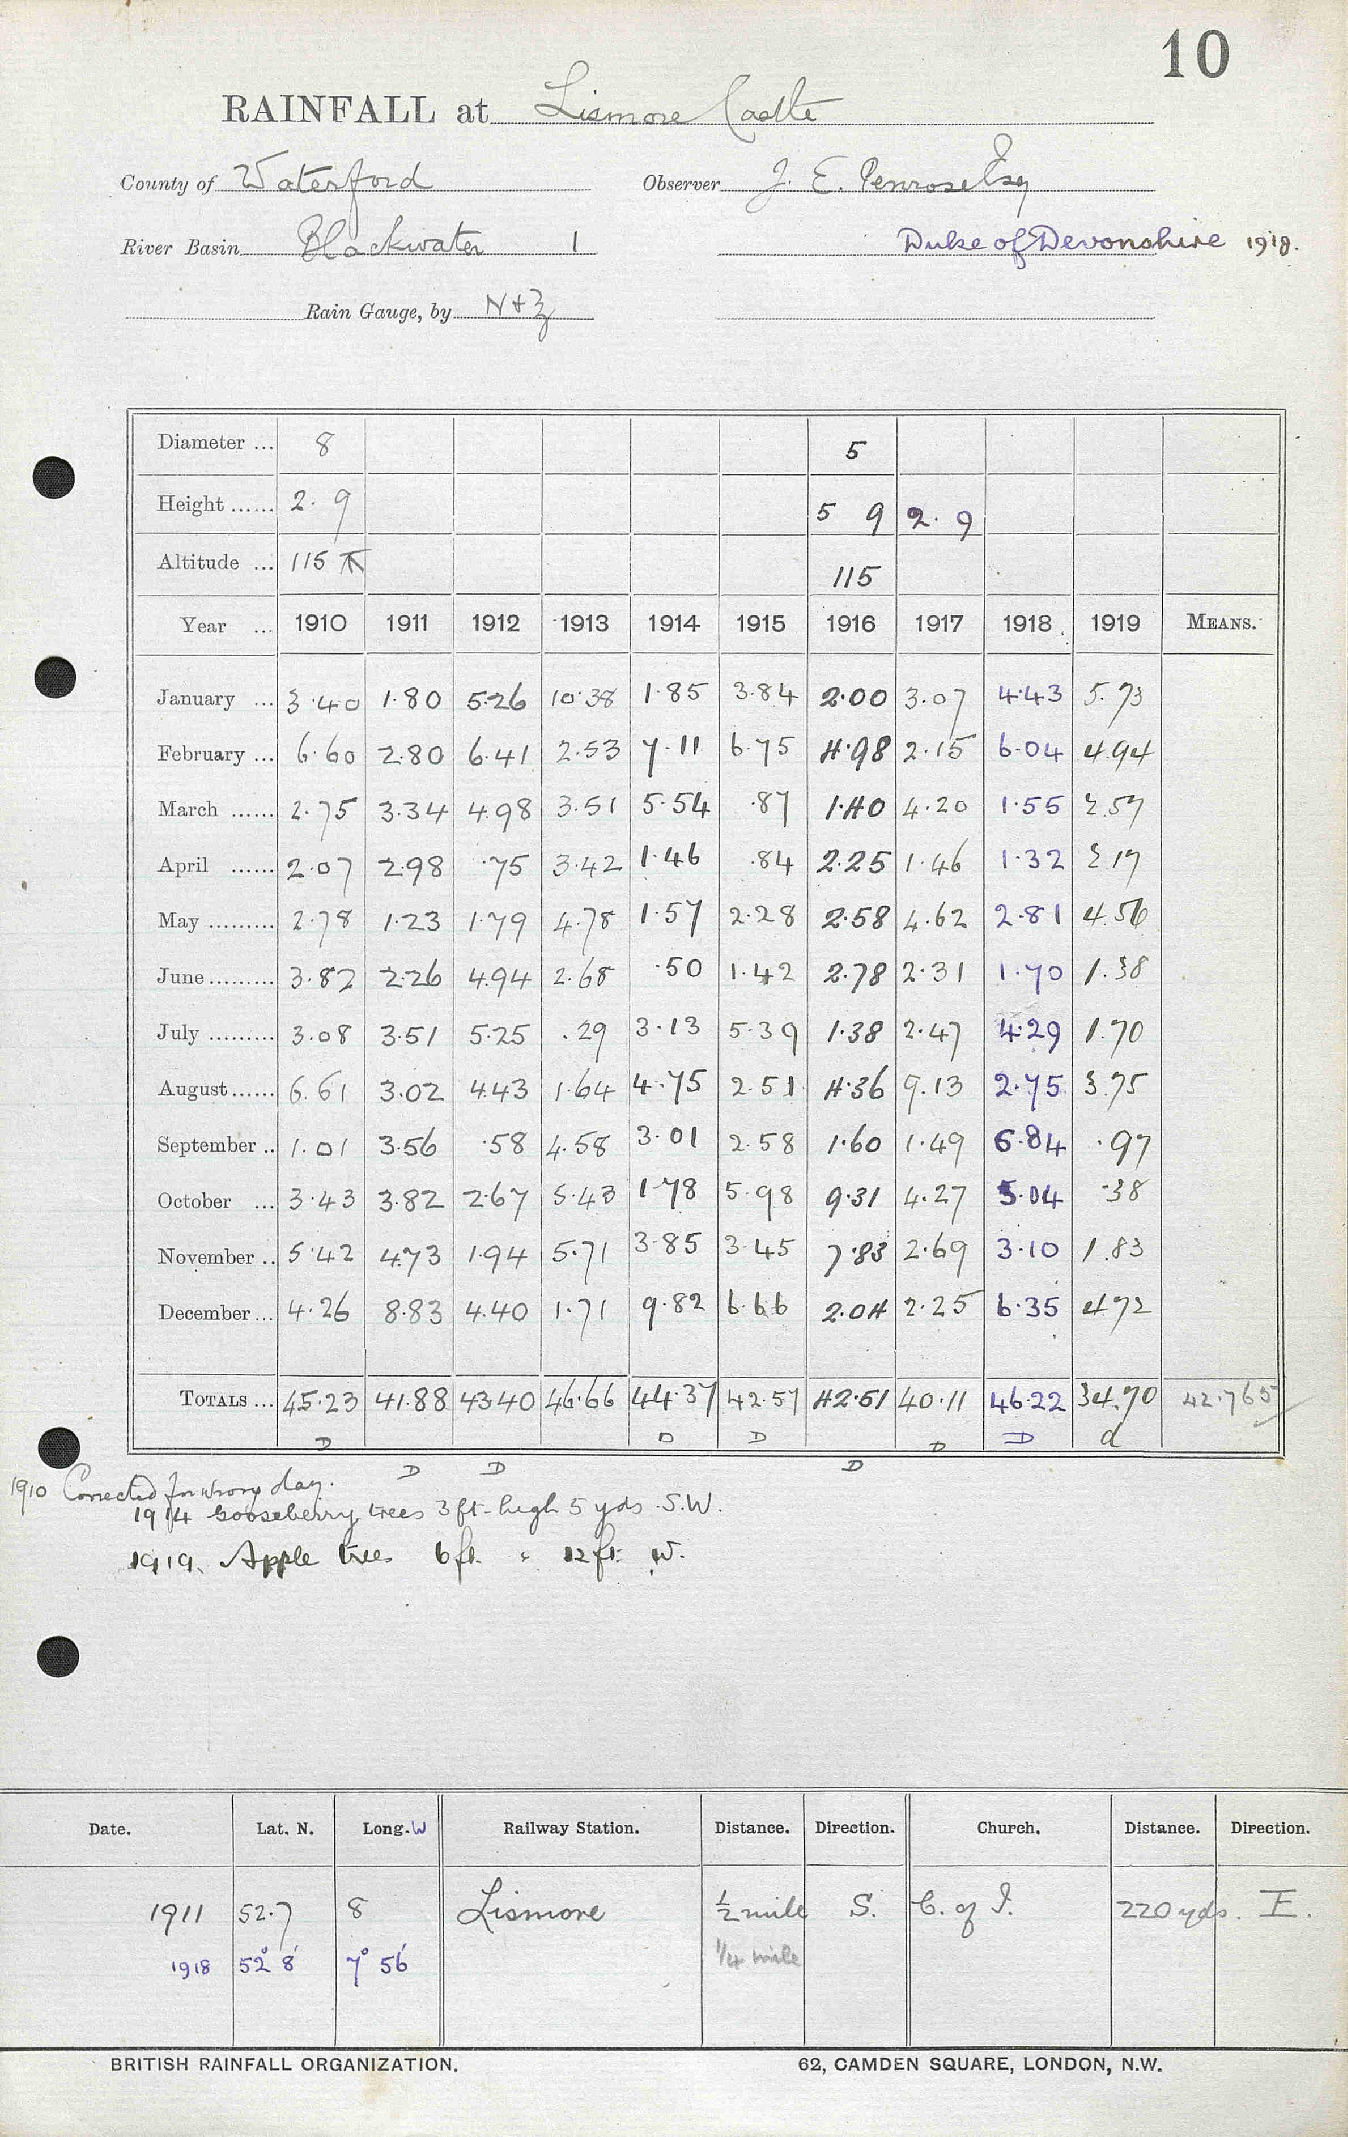 10
RAINFALL at Lismore Castle
County of Waterford Observer J. E. Penrose Esq
River Basin Blackwater 1 Duke of Devonshire 1918.
Rain Gauge, by N + Z
Diameter ... 8 5
Height ...... 2. 9 5 9 2. 9
Altitude ... 115 115
Year ... 1910 1911 1912 1913 1914 1915 1916 1917 1918 1919 MEANS.
January ... 3.40 1.80 5.26 10.38 1.85 3.84 2.00 3.07 4.43 5.73
February ... 6.60 2.80 6.41 2.53 7.11 6.75 4.98 2.15 6.04 4.94
March ...... 2.75 3.34 4.98 3.51 5.54 .87 1.40 4.20 1.55 2.57
April ...... 2.07 2.98 .75 3.42 1.46 .84 2.25 1.46 1.32 2.17
May ......... 2.78 1.23 1.79 4.78 1.57 2.28 2.58 4.62 2.81 4.56
June ......... 3.82 2.26 4.94 2.68 .50 1.42 2.78 2.31 1.70 1.38
July ......... 3.08 3.51 5.25 .29 3.13 5.39 1.38 2.47 4.29 1.70
August ...... 6.61 3.02 4.43 1.64 4.75 2.51 4.36 9.13 2.75 3.75
September .. 1.01 3.56 .58 4.58 3.01 2.58 1.60 1.49 6.84 .97
October ... 3.43 3.82 2.67 5.43 1.78 5.98 9.31 4.27 5.04 .38
November .. 5.42 4.73 1.94 5.71 3.85 3.45 7.83 2.69 3.10 1.83
December ... 4.26 8.83 4.40 1.71 9.82 6.66 2.04 2.25 6.35 4.72
TOTALS ... 45.23 41.88 43.40 46.66 44.37 42.57 42.51 40.11 46.22 34.70 42.765
D D D D D d
D D D
1910 Corrected for wrong day.
1914 Gooseberry trees 3 ft. high 5 yds S.W.
1919. Apple trees 6 ft. " 12 ft. W.
Date. Lat. N. Long. W Railway Station. Distance. Direction. Church. Distance. Direction.
1911 52.7 8 Lismore ½ mile S. C. of I. 220 yds. E.
1918 52° 8' 7° 56' 1/4 mile
BRITISH RAINFALL ORGANIZATION. 62, CAMDEN SQUARE, LONDON, N.W.